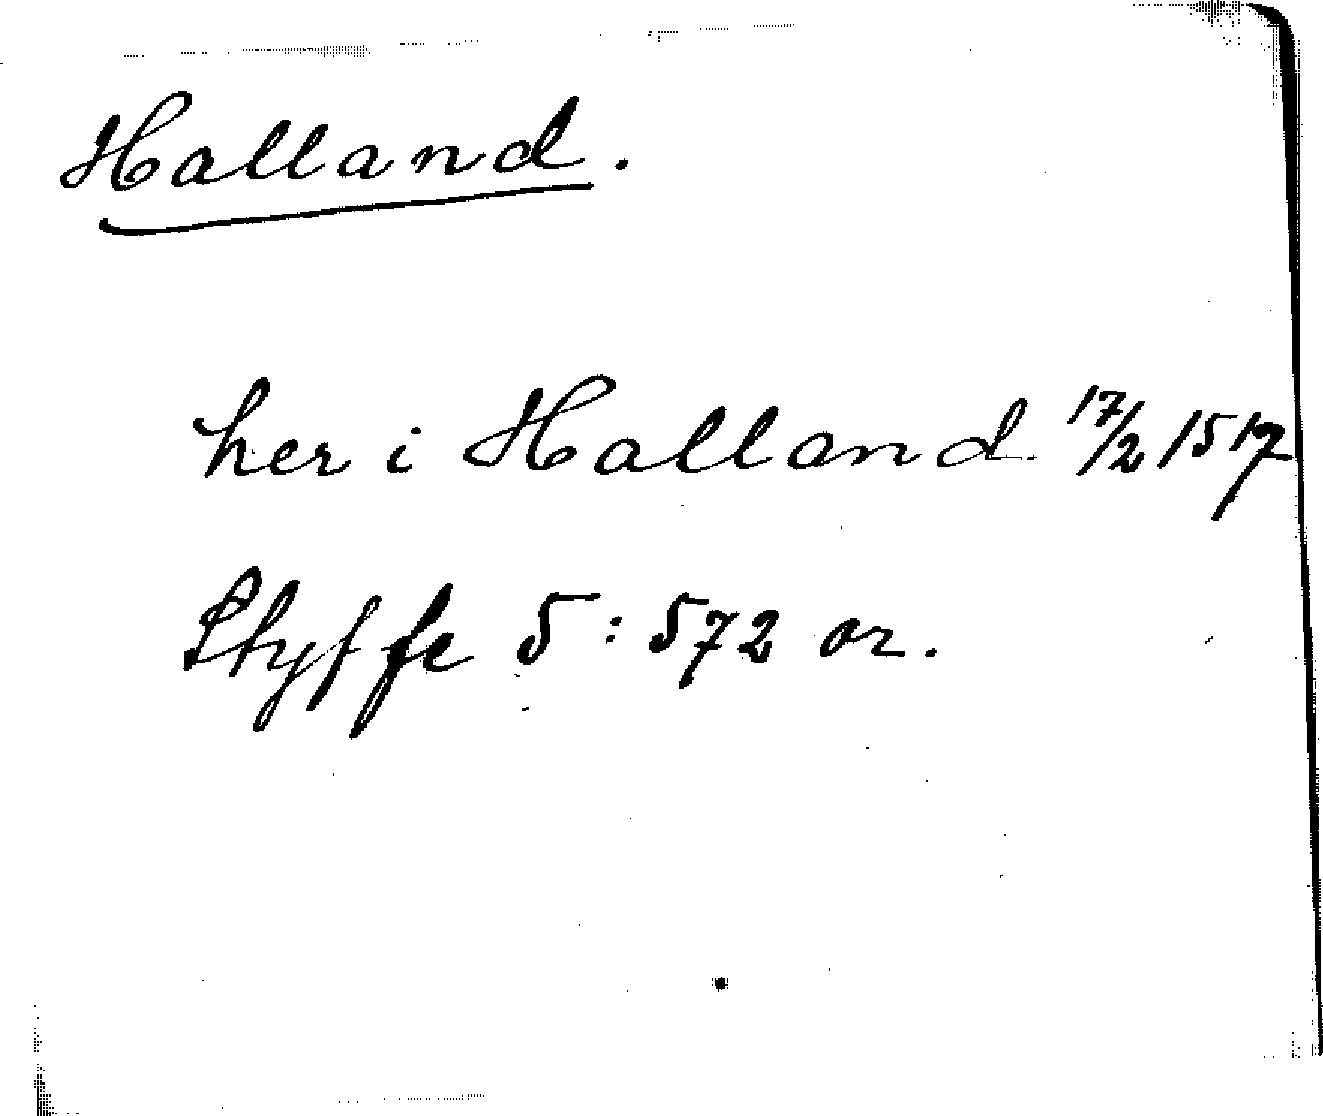 Halland.
her i Halland 17/2 1517
Styffe 5:572 or.